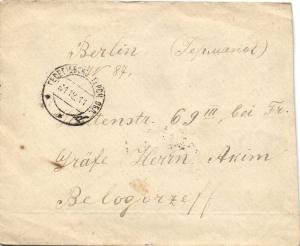 Berlin (Германія)
N 87.
tenstr. 69 III, bei Fr.
Gräfe Herrn Akim
Belogorzeff